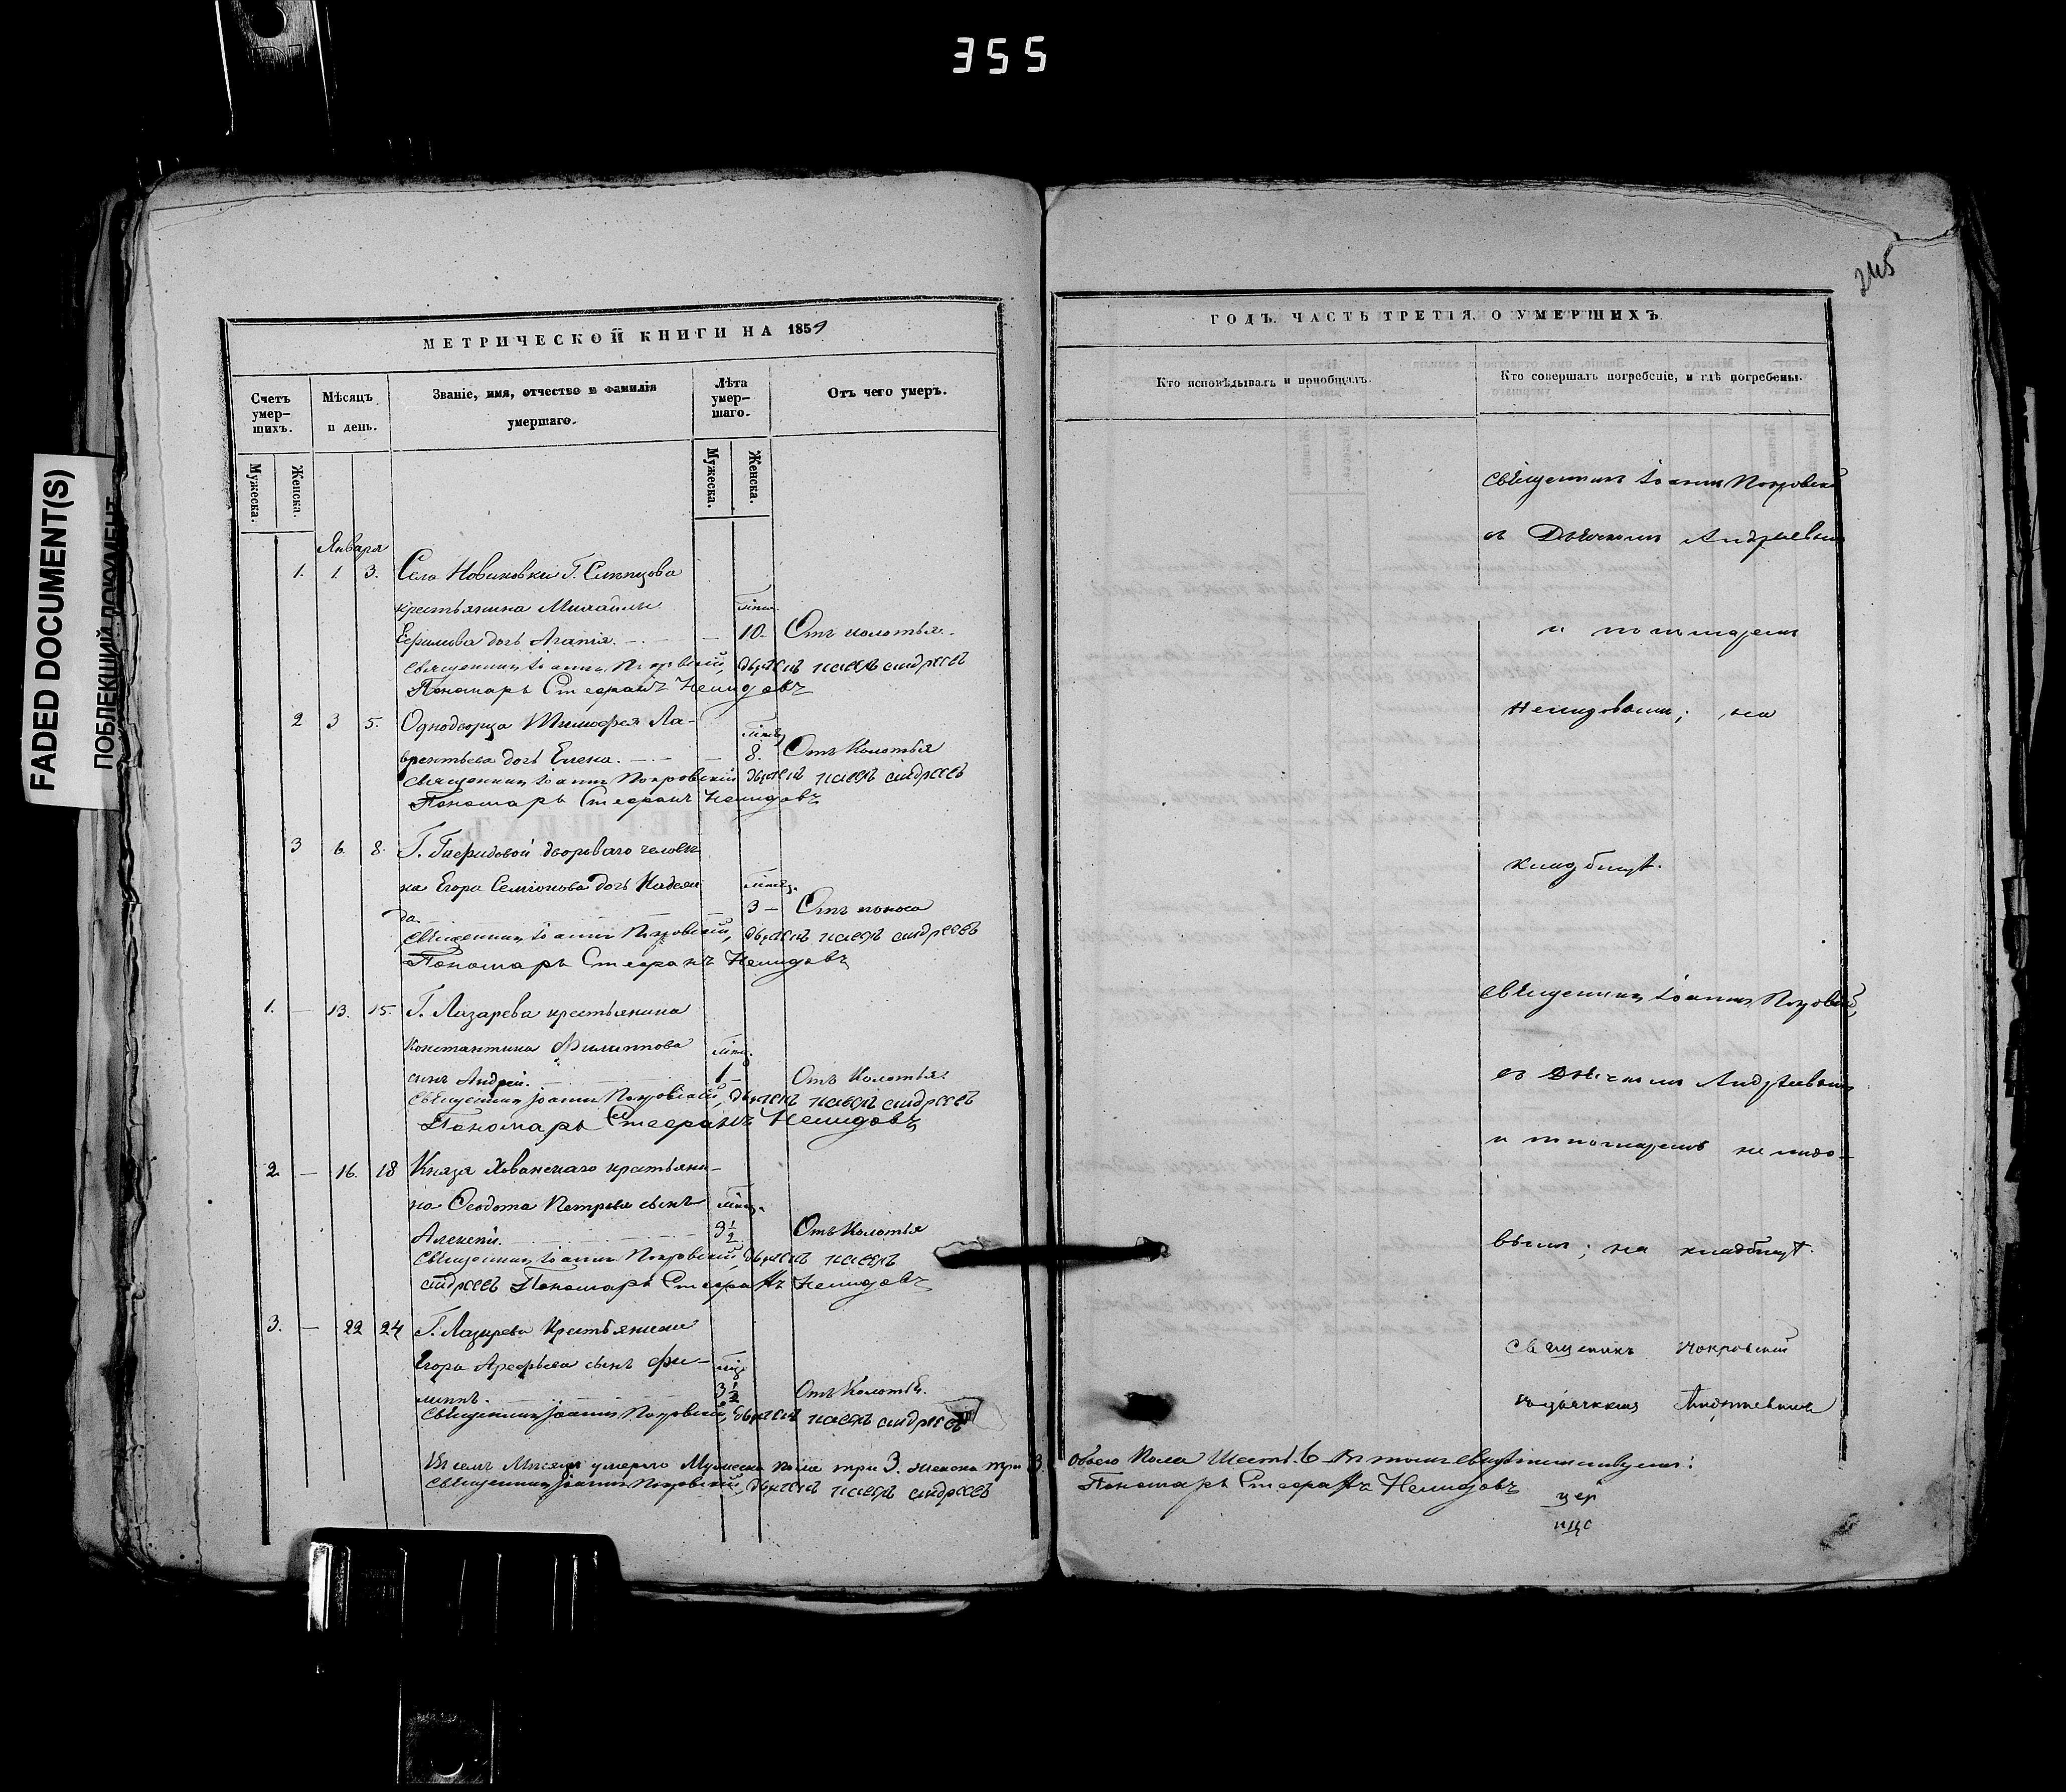 355
FADED DOCUMENT(S)
ПОБЛЕКШИЙ ДОКУМЕНТ
245
МЕТРИЧЕСКОЙ КНИГИ НА 1859
Счетъ умер-шихъ.
Мѣсяцъ и день.
Званіе, имя, отчество и фамилія умершаго.
Лѣта умер-шаго.
Отъ чего умеръ.
Мужеска.
Женска.
Мужеска.
Женска.
Января
1. 1. 3. Села Новиковки Г. Слѣпцова
крестьянина Михайлы
Ефимова дочь Агапія. — 10. Отъ колотья.
Священникъ Іоаннъ Покровскій, дьячекъ андреевъ
Пономарь Стефанъ Немидовъ
2 3 5. Однодворца Тимофея Ла-
врентьева дочь Елена. — 8. Отъ Колотья
Священникъ Іоаннъ Покровскій дьячекъ андреевъ
Пономарь Стефанъ Немидовъ
3 6. 8. Г. двороваго челове-
ка Егора Семіонова дочь Надеж
да 3 — Отъ поноса
Священникъ Іоаннъ Покровскій, дьячекъ андреевъ
Пономарь Стефанъ Немидовъ
1. — 13. 15. Г. Лазарева крестьянина
Константина Филиппова
сынъ Андрей. 1 — Отъ Колотья.
Священникъ Іоаннъ Покровскій, дьячекъ андреевъ
Пономарь Стефанъ Немидовъ
2. — 16. 18 Князя Хованскаго крестьяни-
на Ѳеодота Петрова сынъ
Алексѣй. 3½ Отъ Колотья
Священникъ Іоаннъ Покровскій, дьячекъ
андреевъ Пономарь Стефанъ Немидовъ
3. — 22 24 Г. Лазарева Крестьянина
Егора Арефьева сынъ Фи-
липпъ. 3½ Отъ Колотья.
Священникъ Іоаннъ Покровскій, дьячекъ андреевъ
Въ семъ Мѣсяцѣ умерло Мужеска пола три 3. женска три 3.
Священникъ Іоаннъ Покровскій, дьячекъ андреевъ
ГОДЪ. ЧАСТЬ ТРЕТІЯ. О УМЕРШИХЪ.
Кто исповѣдывалъ и пріобщалъ.
Кто совершалъ погребеніе, и гдѣ погребены.
Священникъ Іоаннъ Покровскій
съ Дьячкомъ Андреевымъ
и пономаремъ
Немидовымъ; на
кладбищѣ.
Священникъ Іоаннъ Покровскій,
съ Дьячкомъ Андреевымъ
и пономаремъ немидо-
вымъ; на кладбищѣ.
Священникъ Покровскій
съ дьячкомъ Андреевымъ
Обоего Пола Шесть. 6 Въ томъ свидѣтельствуемъ:
Пономарь Стефанъ Немидовъ